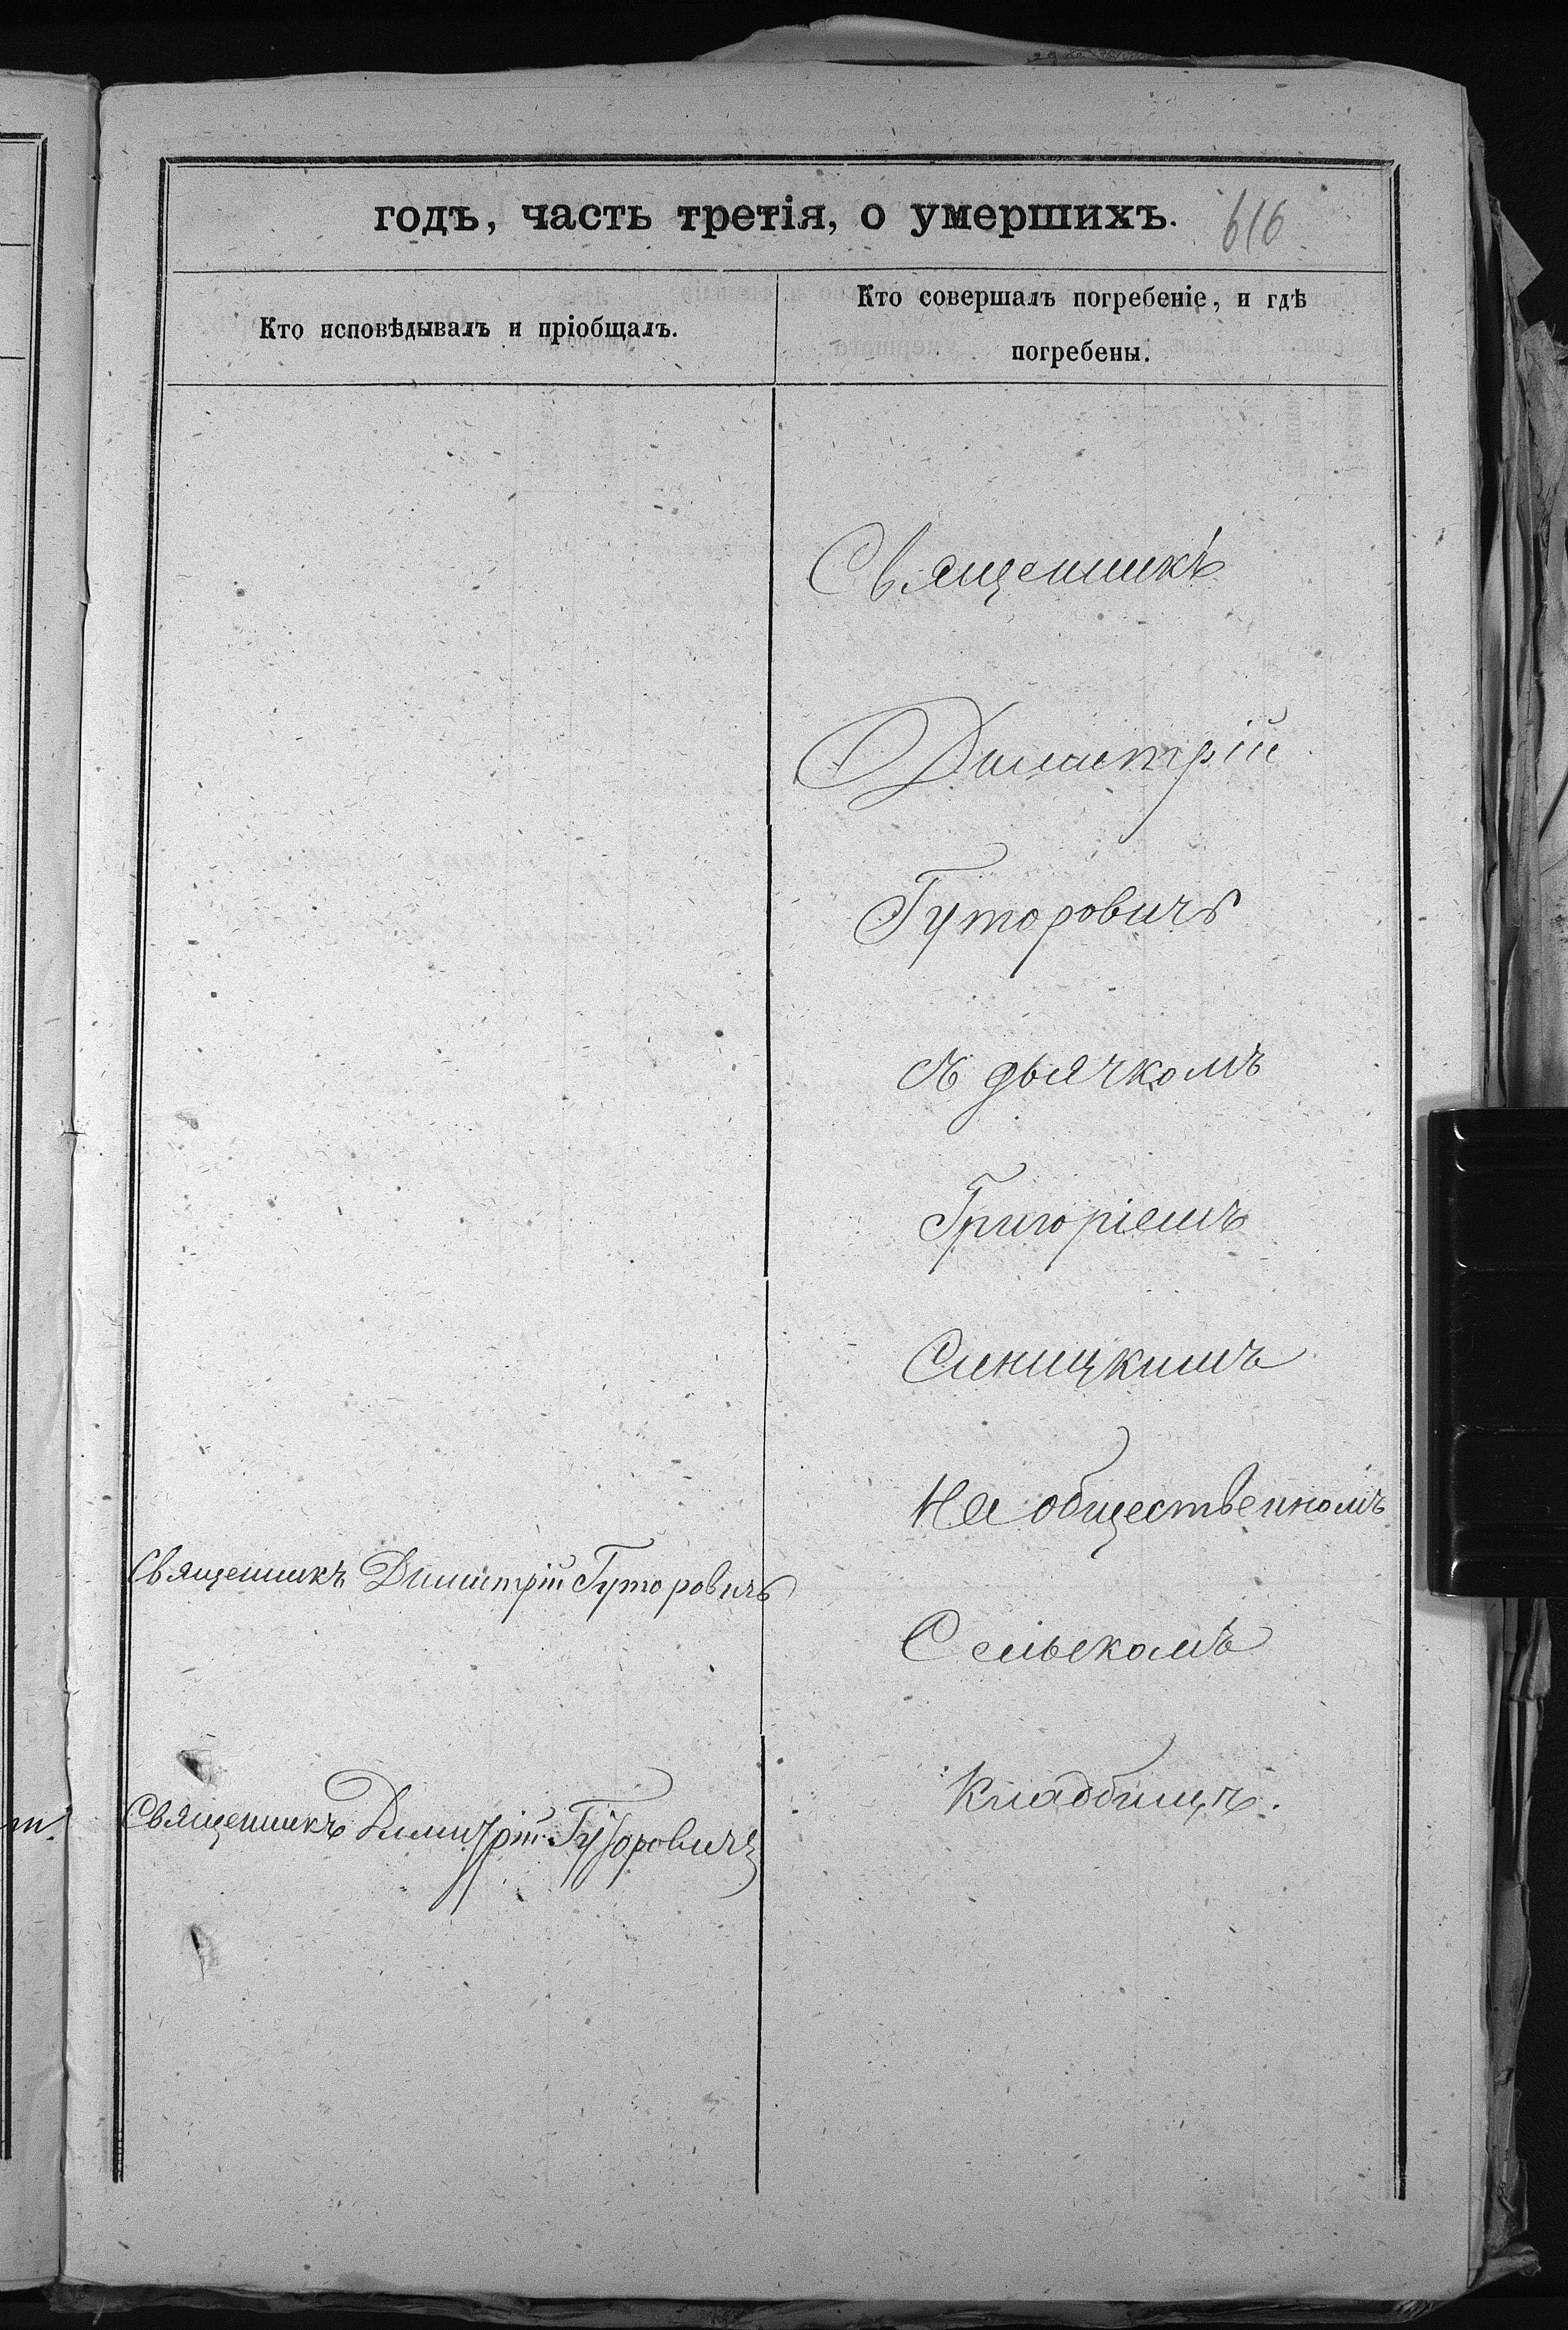 годъ, часть третія, о умершихъ.
616
Кто исповѣдывалъ и пріобщалъ.
Кто совершалъ погребеніе, и гдѣ
погребены.
Священникъ
Димитрій
Гуторовичъ
съ дьячкомъ
Григоріемъ
Синицкимъ
На общественномъ
Сельскомъ
Кладбищѣ.
Священникъ Димитрій Гуторовичъ
Священникъ Димитрій Гуторовичъ
т.